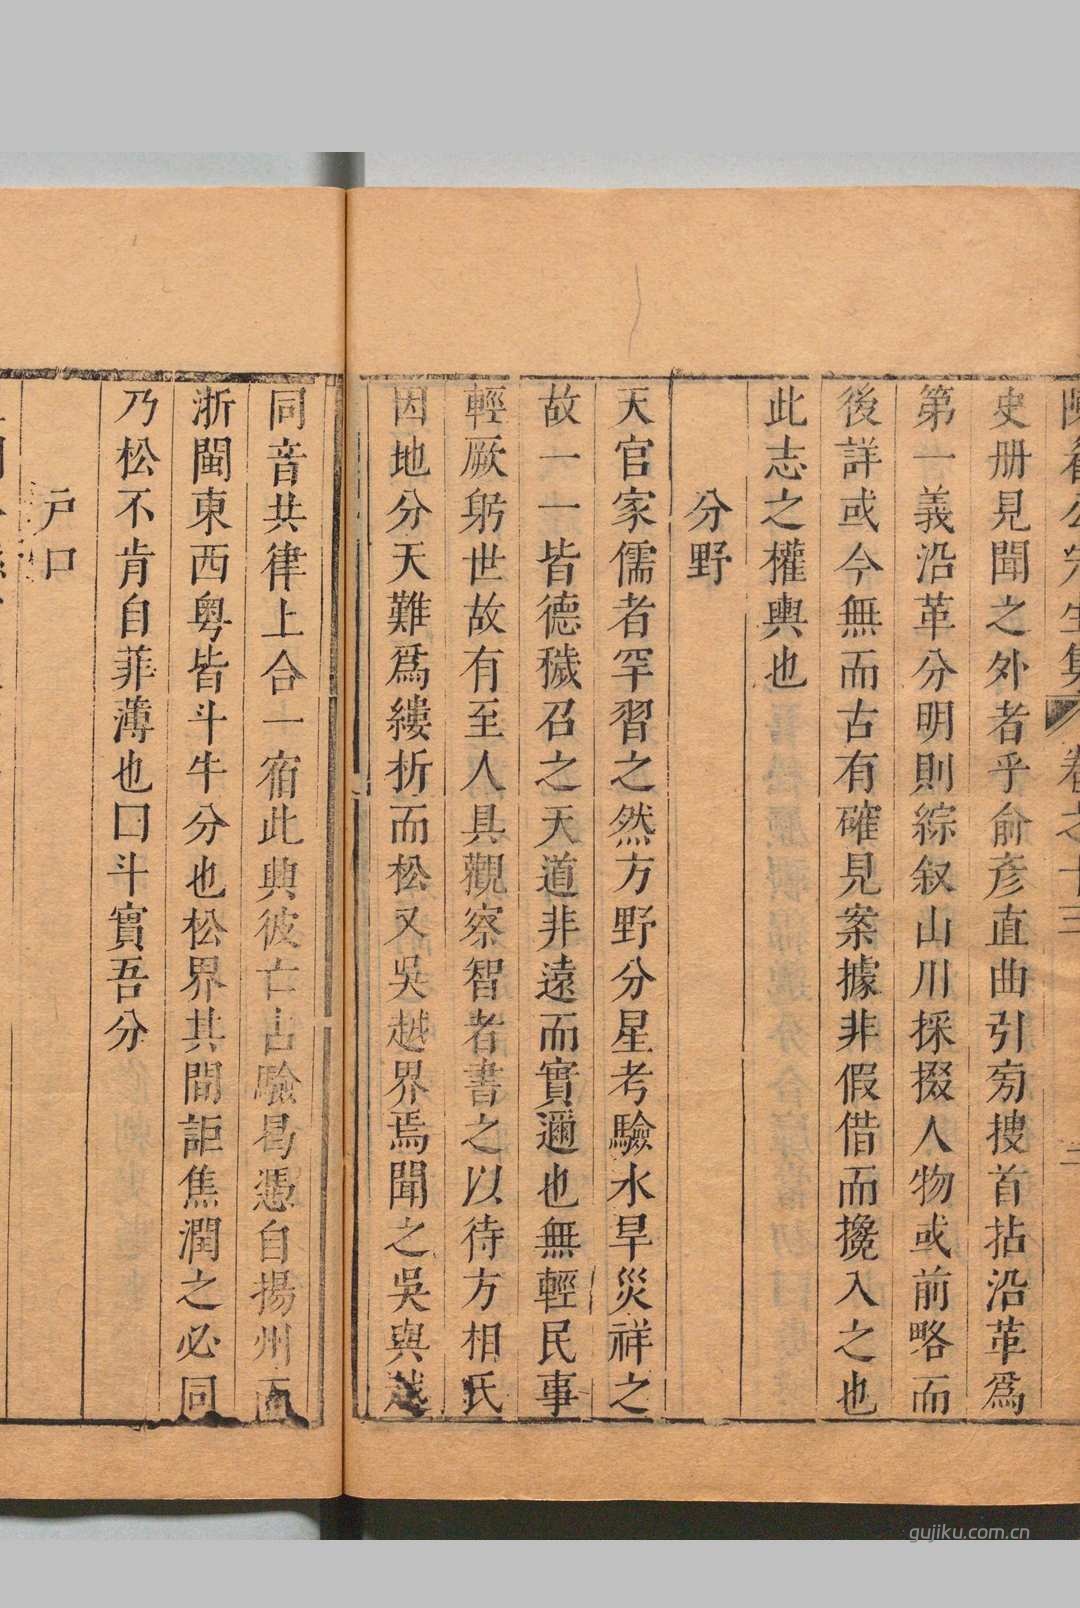 陳眉公先生集 卷之十三 二
史册見聞之外者乎俞彦直曲引旁搜首拈沿革爲
第一義沿革分明則綜叙山川採掇人物或前略而
後詳或今無而古有確見案據非假借而攙入之也
此志之權輿也
分野
天官家儒者罕習之然方野分星考驗水旱災祥之
故一一皆德穢召之天道非遠而實邇也無輕民事
輕厥躬世故有至人具觀察智者書之以待方相氏
因地分天難爲縷析而松又吳越界焉聞之吳與越
同音共律上合一宿此典彼亡占驗曷憑自揚州而
浙閩東西粤皆斗牛分也松界其間詎焦潤之必同
乃松不肯自菲薄也曰斗實吾分
戸口